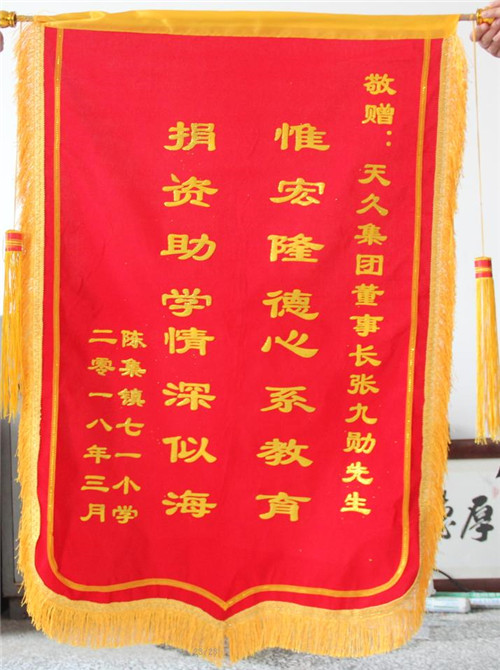 敬赠：天久集团董事长张九勋先生
惟宏隆德心系教育
捐资助学情深似海
陈集镇七一小学
二零一八年三月
厚德